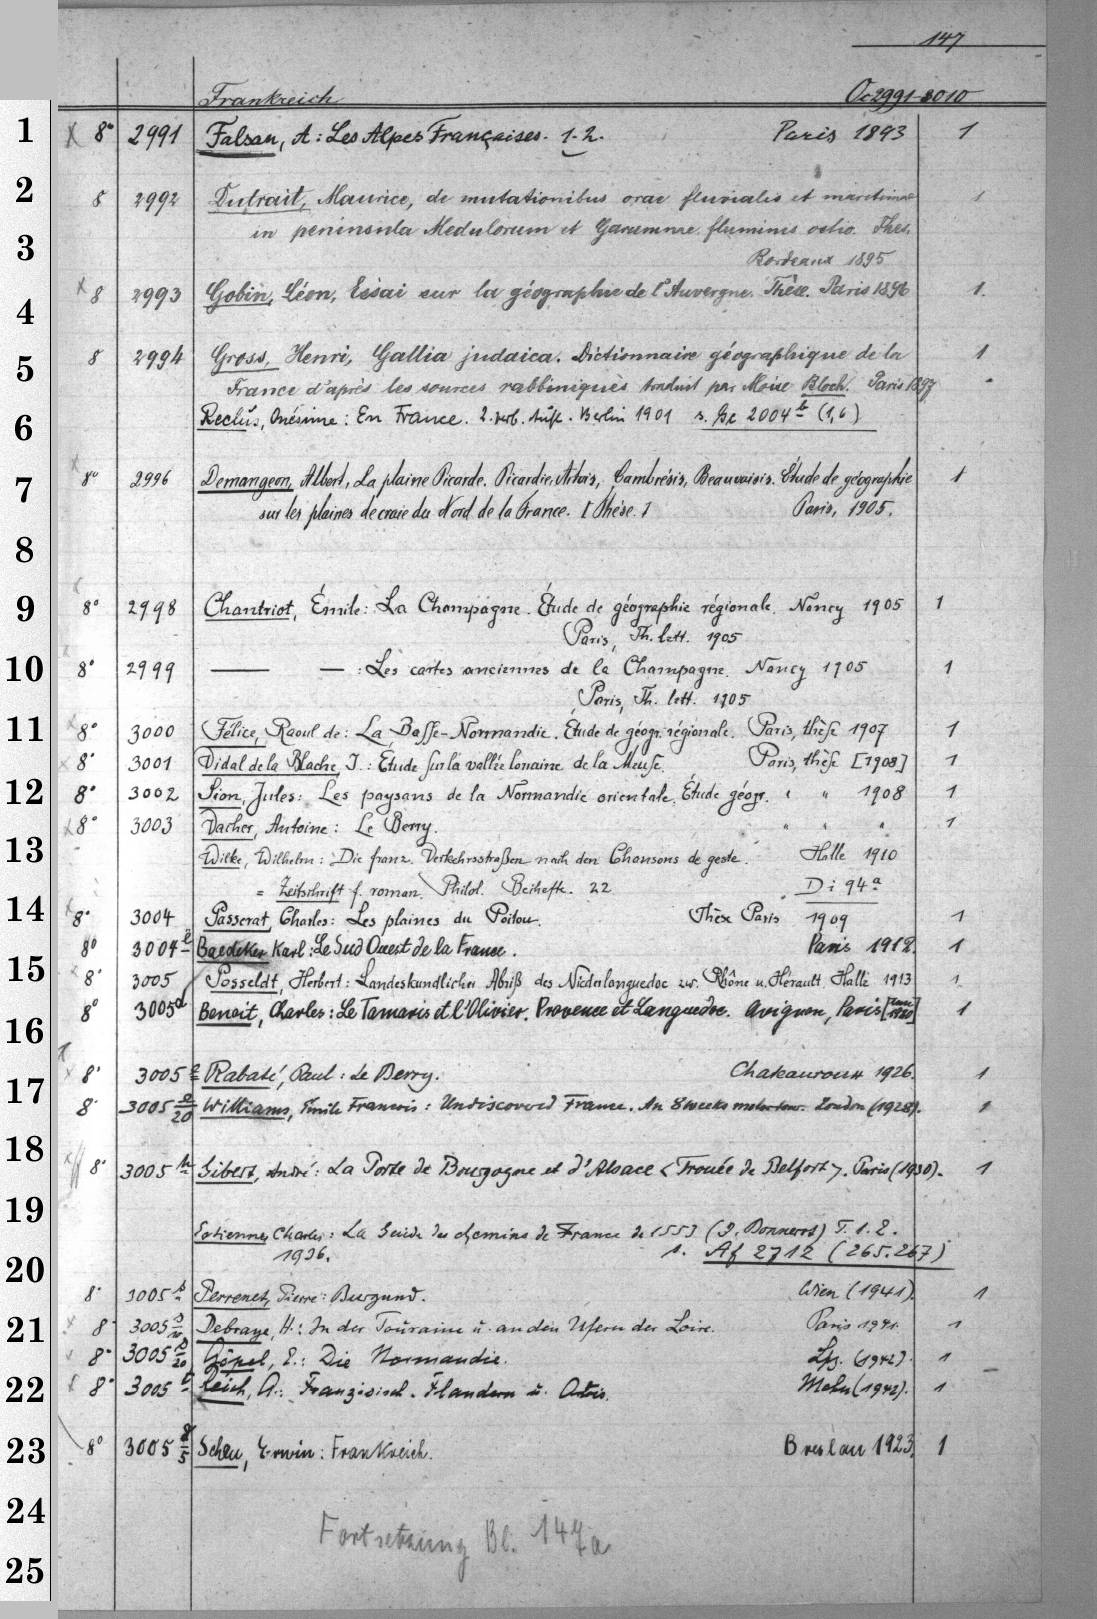 147
Frankreich Oc 2991-3010
1 x 8° 2991 Falsan, A: Les Alpes Françaises. 1-2. Paris 1893 1
2 8 2992 Dutrait, Maurice, de mutationibus orae fluvialis et maritimae 1
3 in peninsula Medulorum et Garumnae fluminis ostio. Thes.
Bordeaux 1895
4 x 8 2993 Gobin, Léon, Essai sur la géographie de l'Auvergne. Thèse. Paris 1896 1.
5 8 2994 Gross, Henri, Gallia judaica. Dictionnaire géographique de la 1
France d'après les sources rabbiniques traduit par Moïse Bloch. Paris 1897
6 Reclus, Onésime: En France. 2. verb. Aufl. Berlin 1901 s. 2004 b (1,6)
7 x 8° 2996 Demangeon, Albert, La plaine Picarde. Picardie, Artois, Cambrésis, Beauvaisis. Étude de géographie 1
sur les plaines de craie du Nord de la France. [Thèse.] Paris, 1905.
8
9 8° 2998 Chantriot, Émile: La Champagne. Étude de géographie régionale. Nancy 1905 1
Paris, Th. lett. 1905
10 8° 2999 — — : Les cartes anciennes de la Champagne. Nancy 1905 1
Paris, Th. lett. 1905
11 x 8° 3000 Félice, Raoul de: La Basse-Normandie. Étude de géogr. régionale. Paris, thèse 1907 1
x 8° 3001 Vidal de la Blache, J.: Étude sur la vallée lorraine de la Meuse. Paris, thèse [1908] 1
12 8° 3002 Sion, Jules: Les paysans de la Normandie orientale. Étude géogr. " " 1908 1
x 8° 3003 Vacher, Antoine: Le Berry. " " " 1
13 Wilke, Wilhelm: Die franz. Verkehrsstraßen nach den Chansons de geste. Halle 1910
= Zeitschrift f. roman. Philol. Beihefte. 22 Di 94a
14 x 8° 3004 Passerat, Charles: Les plaines du Poitou. Thèse Paris 1909 1
8° 3004 Baedeker Karl: Le Sud Ouest de la France. Paris 1912. 1
15 x 8° 3005 Posseldt, Herbert: Landeskundlicher Abriß des Niederlanguedoc zw. Rhône u. Hérault. Halle 1913 1
16 8° 3005d Benoit, Charles: Le Tamaris et l'Olivier. Provence et Languedoc. Avignon, Paris 1
17 x 8° 3005 Rabaté, Paul: Le Berry. Chateauroux 1926. 1
8° 3005 e/20 Williams, Emile Francis: Undiscovered France. An 8 weeks motor tour. London (1928). 1
18 8° 3005 Gibert, André: La Porte de Bourgogne et d'Alsace <Trouée de Belfort>. Paris (1930). 1
19 Estienne, Charles: La Guide des chemins de France de 1553 (J. Bonnerot) T. 1. 2.
1936. s. Af 2712 (265.267)
20 8° 3005 Perrenet, Pierre: Burgund. Wien (1941) 1
21 x 8° 3005 Debraye, H.: In der Touraine u. an den Ufern der Loire. Paris 1941. 1
8° 3005 Göpel, E.: Die Normandie. Lpz. (1942). 1
22 x 8° 3005 Reich, A.: Französisch-Flandern u. Artois. (1942). 1
23 8° 3005 Scheu, Erwin: Frankreich. Breslau 1923. 1
24 Fortsetzung Bl. 147a
25